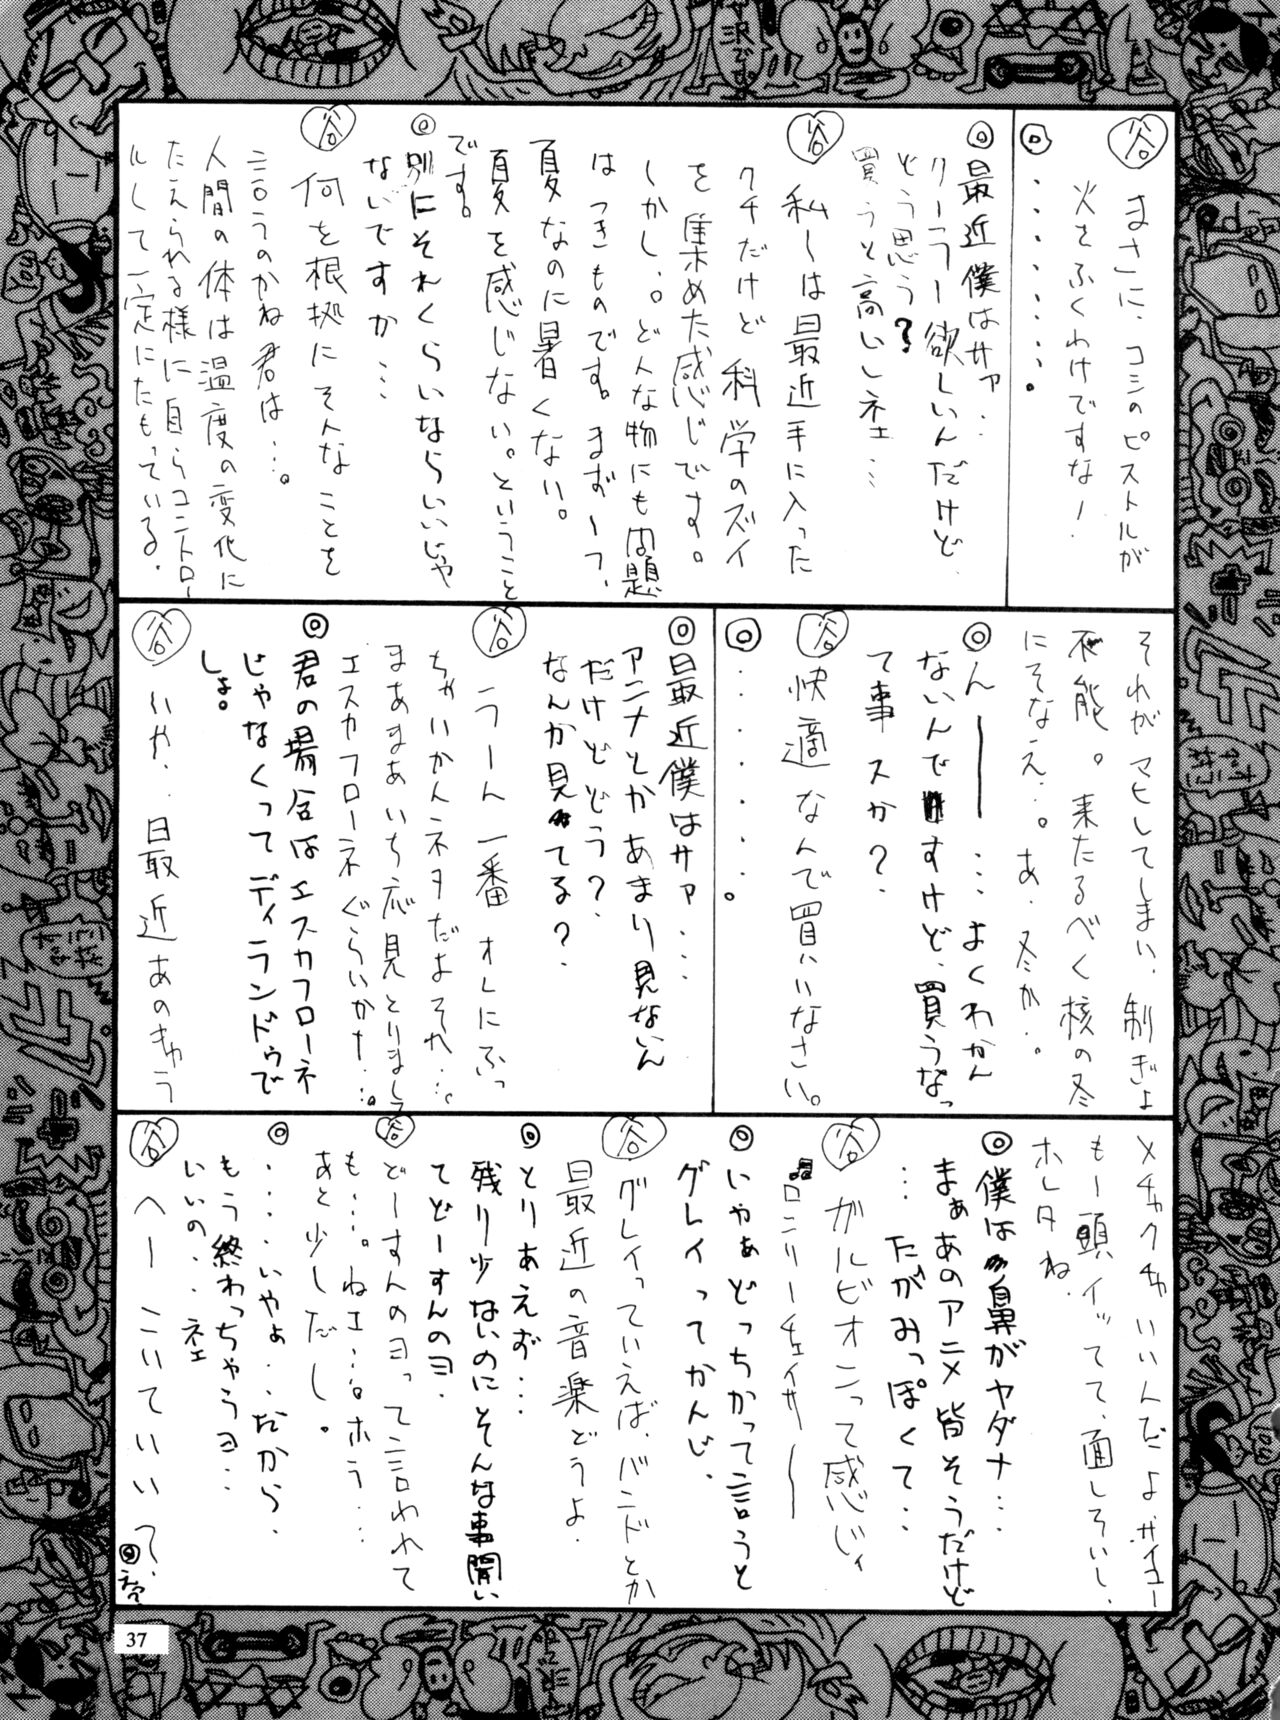 谷 まさに、コシのピストルが
火をふくわけですな!
◎・・・・・・・。
◎最近僕はサァ・・
クーラー欲しいんだけど
どう思う?
買うと高いしネェ…
谷 私〜は最近手に入った
クチだけど 科学のズイ
を集めた感じです。
しかし、。どんな物にも問題
はつきものです。まず一つ、
夏なのに暑くない。
夏を感じない。ということ
です。
◎別にそれくらいならいいじゃ
ないですか…
谷 何を根拠にそんなことを
言うのかね君は…。
人間の体は温度の変化に
たえられる様に自らコントロー
ルして一定にたもっている.
それがマヒしてしまい、制ぎょ
不能。来たるべく核の冬
にそなえ‥。あ、冬か・。
◎ん――…よくわかん
ないんですけど、買うなっ
て事スか?
谷 快適なんで買いなさい。
◎・・・・・・。
◎最近僕はサァ・・・
アニメとかあまり見ないん
だけどどう?
なんか見てる?
谷 うーん一番オレにふっ
ちゃいかんネタだよそれ…。
まあまあいち応見とりまして
エスカフローネぐらいかナ‥。
◎君の場合はエスカフローネ
じゃなくってディランドゥで
しょ。
谷 いや、最近あのきゅう
メチャクチャいいんだよ、サイコー
もー頭イッてて、面しろいし、
ホレタね、
◎僕は鼻がヤダナ…
まぁあのアニメ皆そうだけど
…たがみっぽくて‥
谷 ガルビオンって感じィ
♬ロンリーチェイサー〜
◎いやぁどっちかって言うと
グレイってかんじ、
谷 グレイっていえば、バンドとか
最近の音楽どうよ.
◎とりあえず…
残り少ないのにそんな事聞い
てどーすんのヨ.
谷 どーすんのヨって言われて
も…。ねェ…。ホラ…
あと少しだし。
◎・・・・いやぁ・・だから、
もう終わっちゃうヨ・・
いいの・・ネェ
谷 へー こいていい?.
37